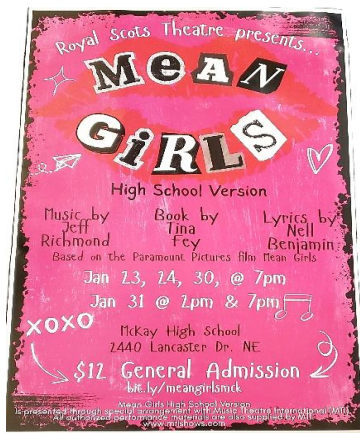 Royal Scots Theatre presents...
MEAN
GiRLS
High School Version
Music by Book by Lyrics by
Jeff Tina Nell
Richmond Fey Benjamin
Based on the Paramount Pictures film Mean Girls
Jan 23, 24, 30, @ 7pm
Jan 31 @ 2pm & 7pm
XOXO
McKay High School
2440 Lancaster Dr. NE
$12 General Admission
bit.ly/meangirlsmck
Mean Girls High School Version
Is presented through special arrangement with Music Theatre International (MTI)
All authorized performance materials are also supplied by MTI
www.mtishows.com